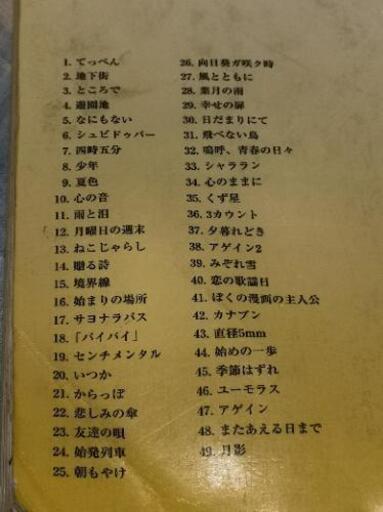 1. てっぺん
2. 地下街
3. ところで
4. 遊園地
5. なにもない
6. シュビドゥバー
7. 四時五分
8. 少年
9. 夏色
10. 心の音
11. 雨と泪
12. 月曜日の週末
13. ねこじゃらし
14. 贈る詩
15. 境界線
16. 始まりの場所
17. サヨナラバス
18. 「バイバイ」
19. センチメンタル
20. いつか
21. からっぽ
22. 悲しみの傘
23. 友達の唄
24. 始発列車
25. 朝もやけ
26. 向日葵ガ咲ク時
27. 風とともに
28. 葉月の雨
29. 幸せの扉
30. 日だまりにて
31. 飛べない鳥
32. 嗚呼、青春の日々
33. シャララン
34. 心のままに
35. くず星
36. 3カウント
37. 夕暮れどき
38. アゲイン2
39. みぞれ雪
40. 恋の歌謡日
41. ぼくの漫画の主人公
42. カナブン
43. 直径5mm
44. 始めの一歩
45. 季節はずれ
46. ユーモラス
47. アゲイン
48. またあえる日まで
49. 月影